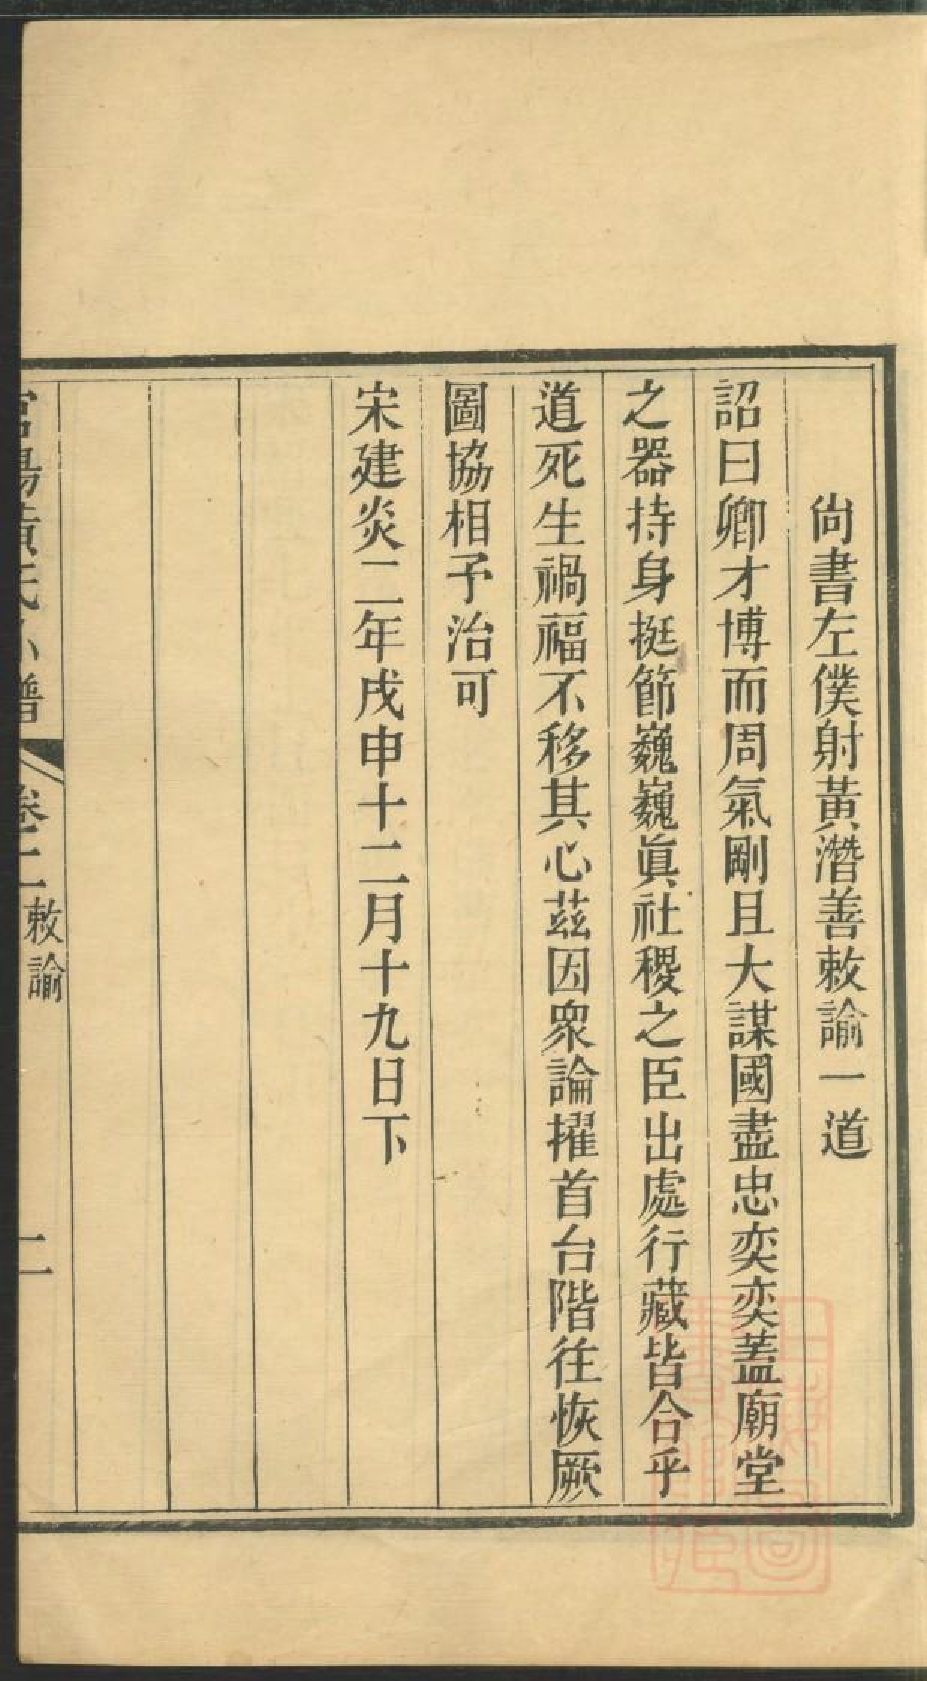 尙書左僕射黃潛善敕諭一道
詔曰卿才博而周氣剛且大謀國盡忠奕奕蓋廟堂
之器持身挺節巍巍眞社稷之臣出處行藏皆合乎
道死生禍福不移其心茲因衆論擢首台階往恢厥
圖協相予治可
宋建炎二年戊申十二月十九日下
黃氏 譜 卷二 敕諭 二